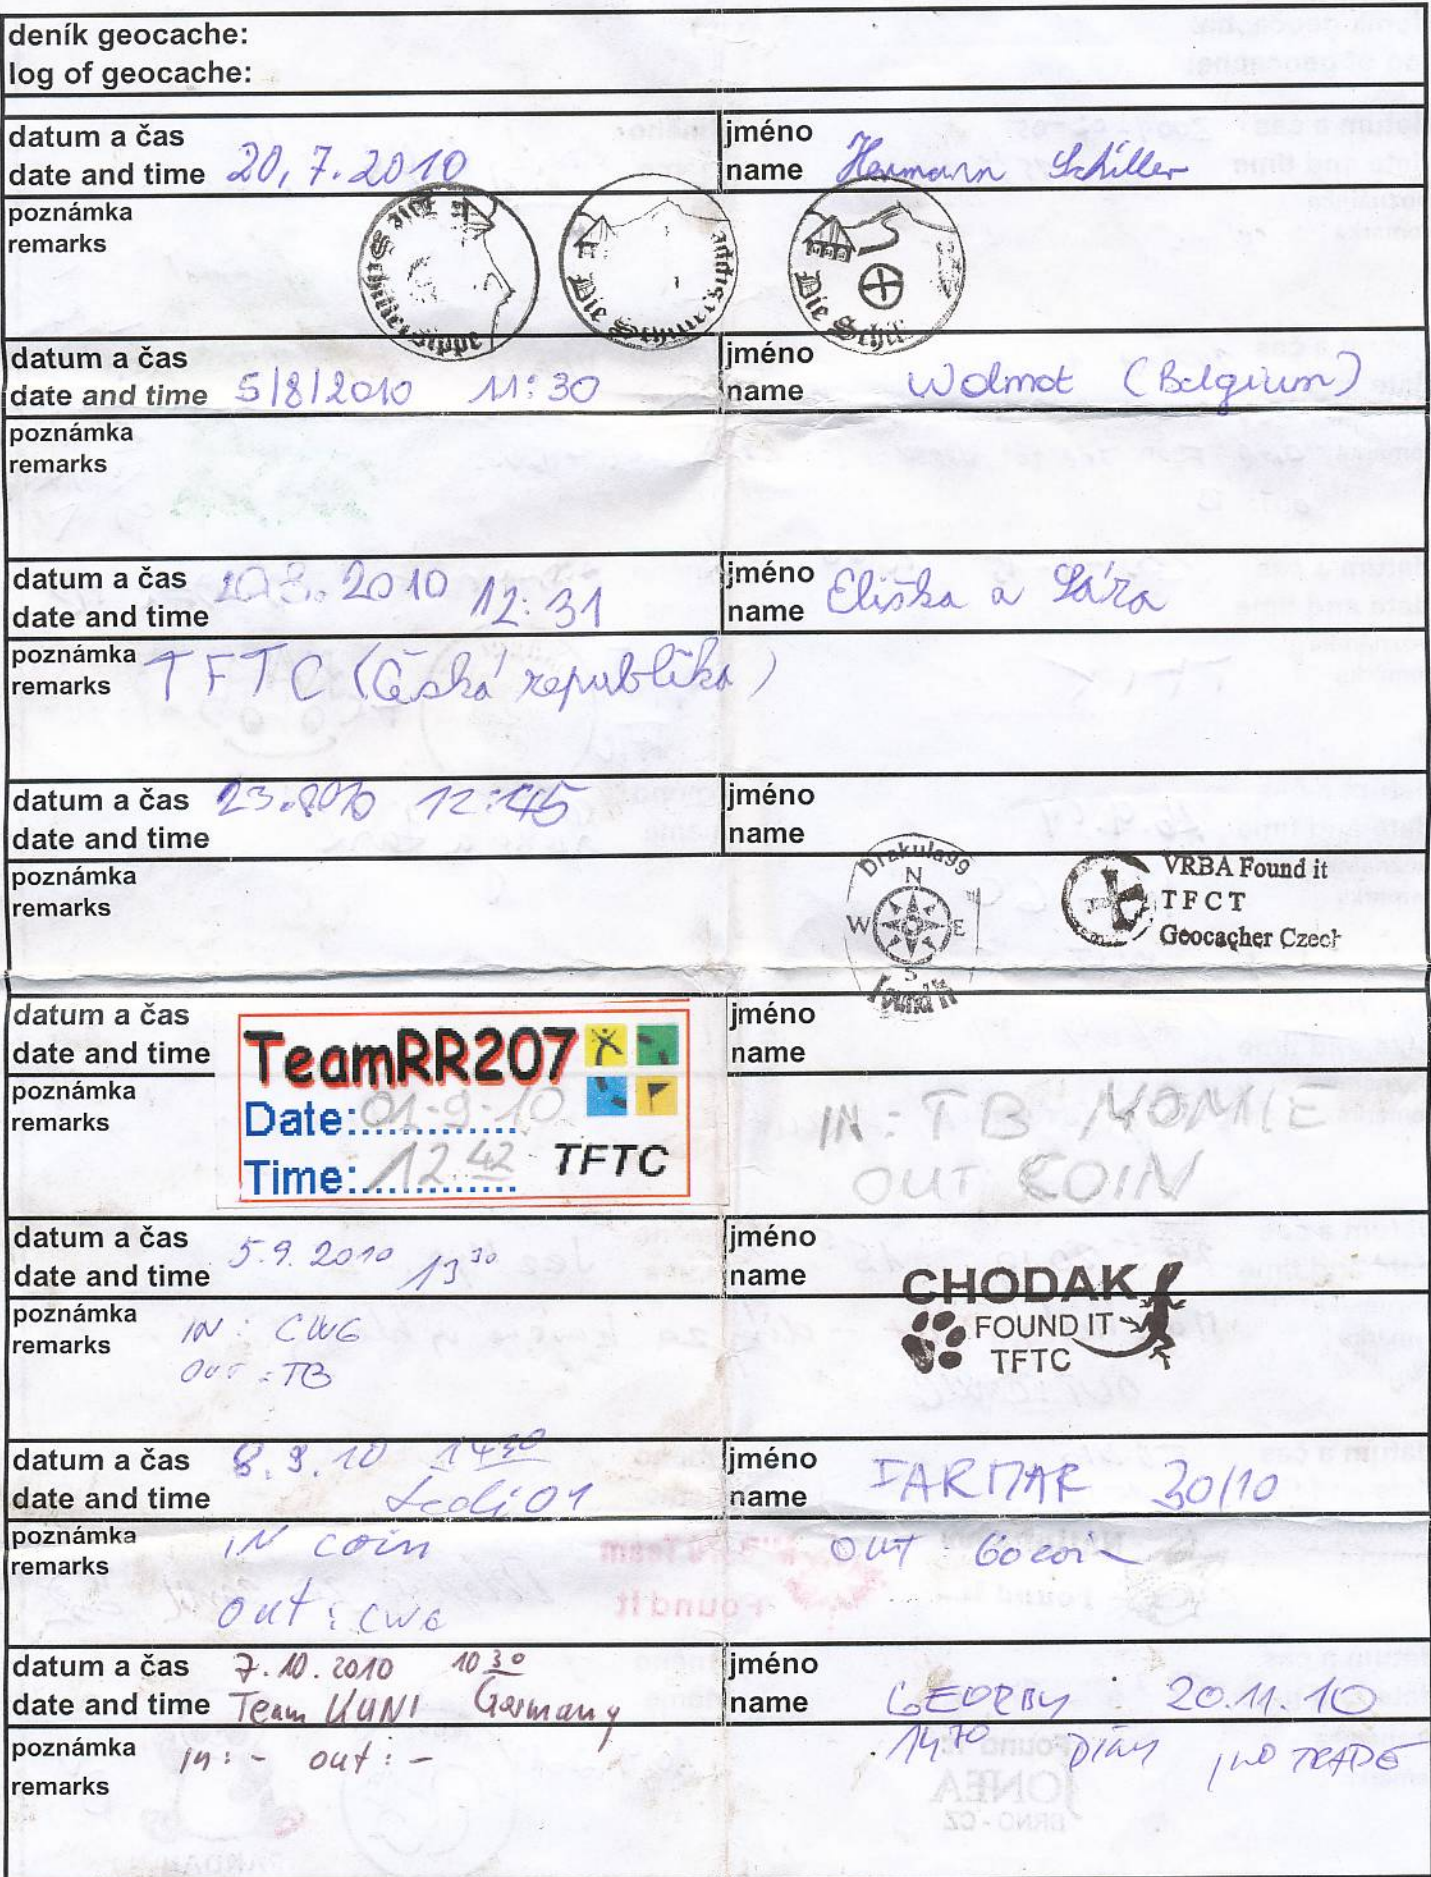 deník geocache:
log of geocache:
datum a čas
date and time 20,7.2010
jméno
name Hermann Schiller
poznámka
remarks
Die Schil
datum a čas
date and time 5/8/2010 11:30
jméno
name Wolmot (Belgium)
poznámka
remarks
datum a čas
date and time 2010 12:31
jméno
name Eliška a Sára
poznámka
remarks TFTC (Česká republika)
datum a čas 12:45
date and time
jméno
name
poznámka
remarks
Drakula99
N
W E
S
Found it
VRBA Found it
TFCT
Geocacher Czech
datum a čas
date and time
jméno
name
poznámka
remarks
TeamRR207
Date: 01-9-10
Time: 12 42 TFTC
IN: TB
OUT COIN
datum a čas
date and time 5.9.2010 13 30
jméno
name
CHODAK
FOUND IT
TFTC
poznámka
remarks
IN: CWG
OUT: TB
datum a čas
date and time 8.9.10 14 30
jméno
name 30/10
poznámka
remarks
IN coin
out: CWG
OUT
datum a čas
date and time 7.10.2010 10 30
Team KUNI Germany
jméno
name GEORBY 20.11.10
poznámka
remarks
in: - out: -
NO TRADE